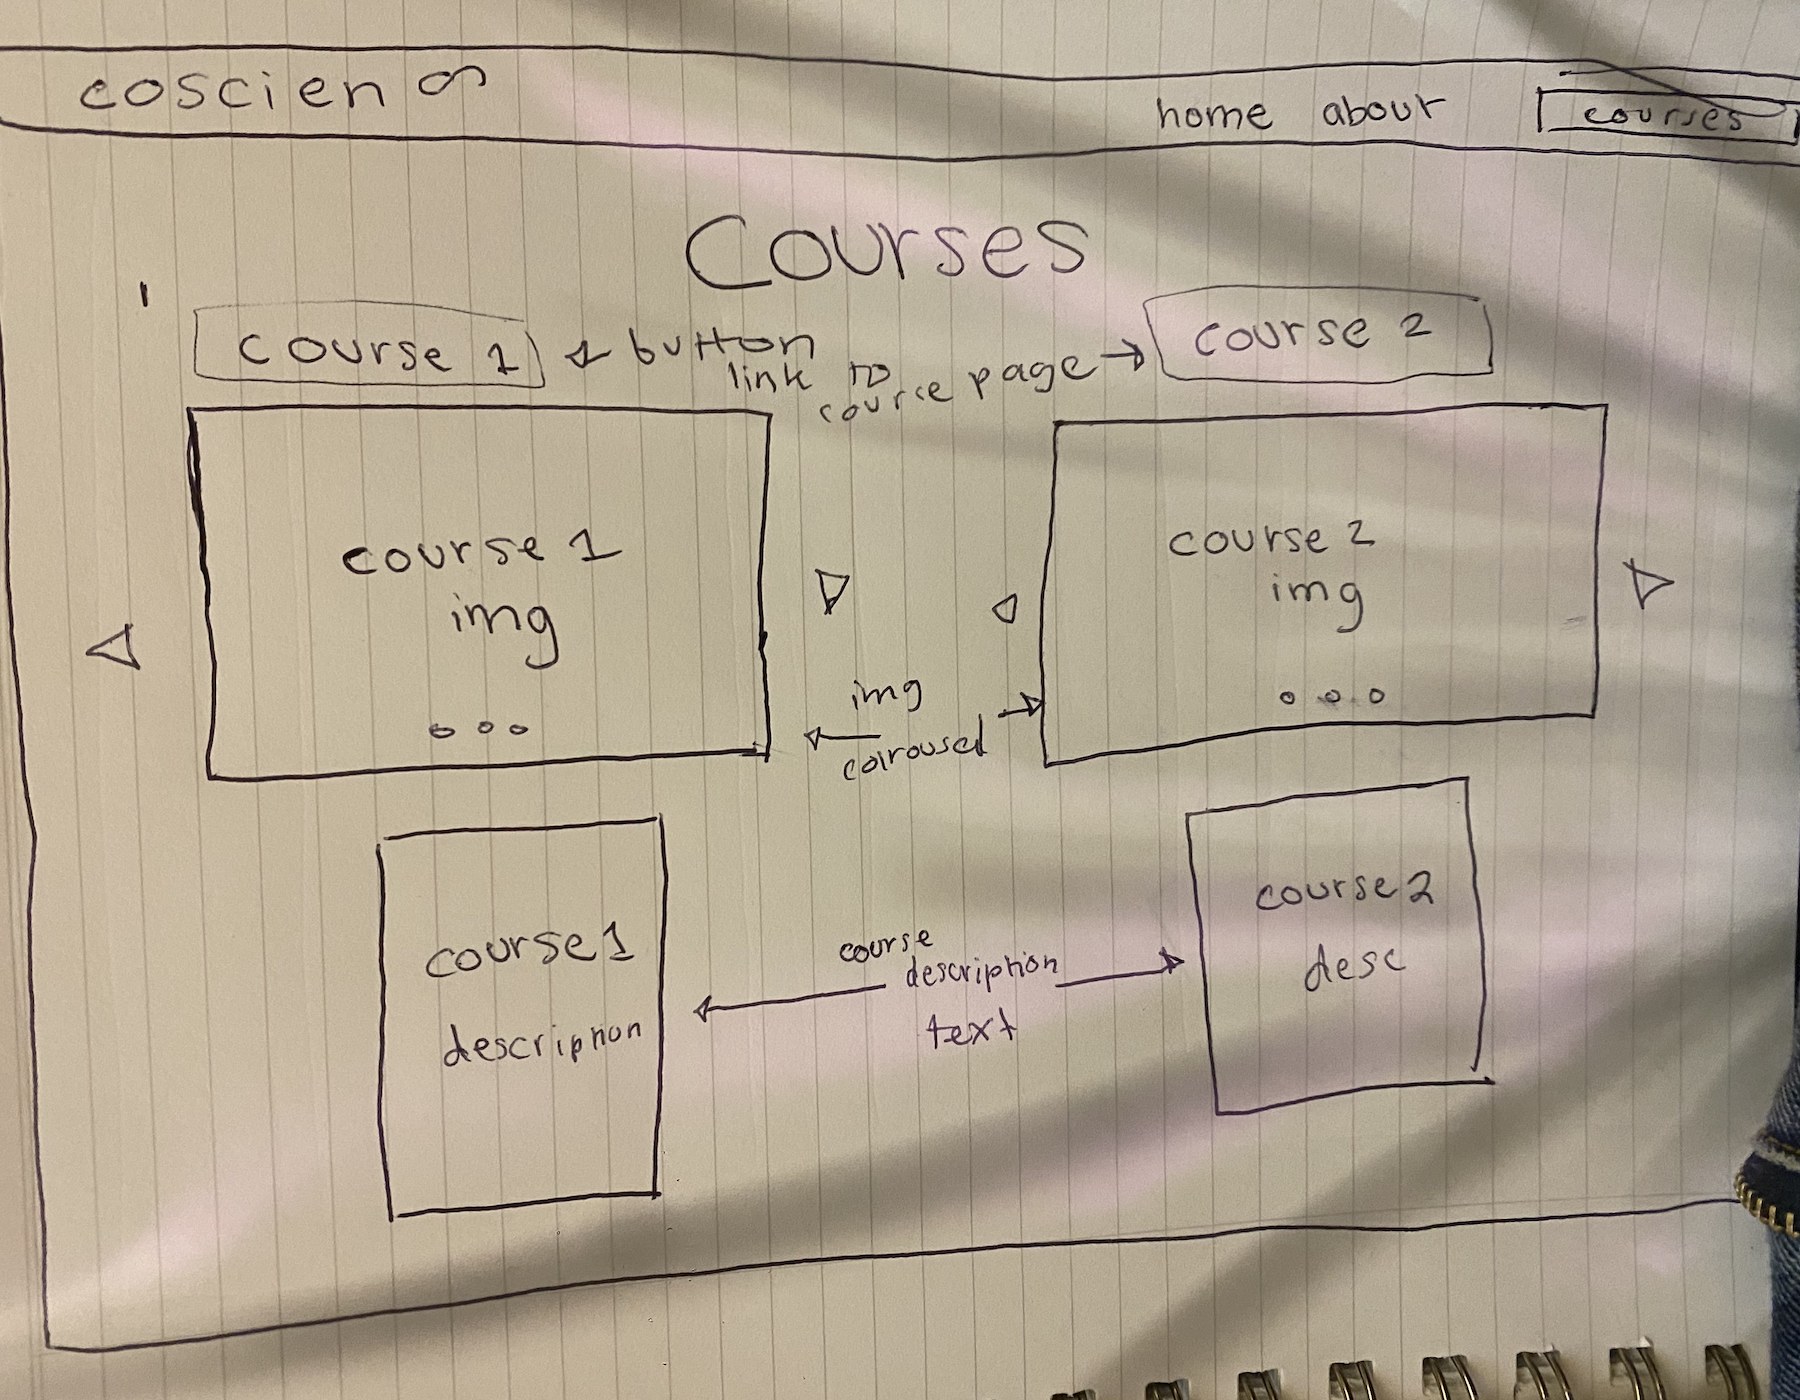 coscien
home about courses
Courses
course 1
button
link to
course page
course 2
course 1
img
course 2
img
img
carousel
course 1
description
course
description
text
course 2
desc